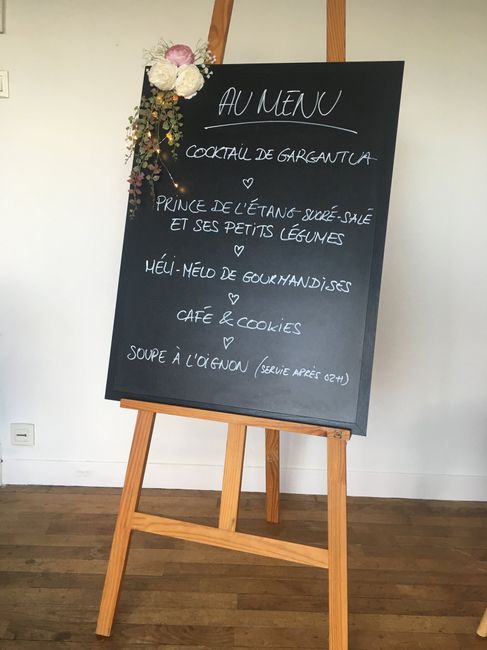 AU MENU
COCKTAIL DE GARGANTUA
PRINCE DE L'ÉTANG SUCRÉ-SALÉ
ET SES PETITS LÉGUMES
MÉLI-MÉLO DE GOURMANDISES
CAFÉ & COOKIES
SOUPE À L'OIGNON (SERVIE APRÈS 02H)